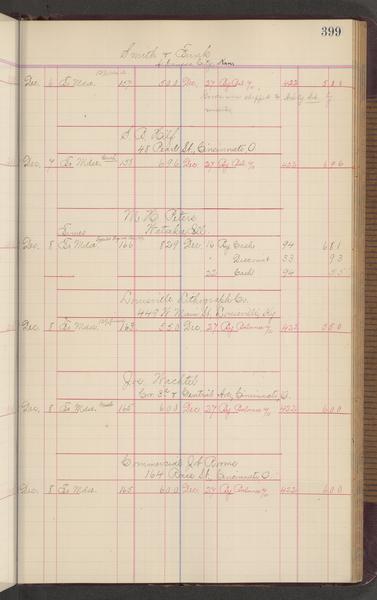 399
Smith & Funk
Kansas City Kans
Dec. 6 To Mdse. 157 Dec. 27 By Bal % 422
48 Pearl St., Cincinnati, O
Dec. 7 To Mdse. 158 696 Dec. 27 By Bal % 422 696
M. H. Peters
Watseka Ill.
Dec. 8 To Mdse 166 829 Dec 16 By Cash 94 681
" Discount 33 93
22 Cash 94 55
Louisville Lithograph Co.
449 W. Main St. Louisville, Ky
Dec. 8 To Mdse. 163 550 Dec. 27 By Balance % 422 550
Joe Wachtel
Cor. 3rd & Central Ave, Cincinnati, O.
Dec. 8 To Mdse. 165 600 Dec. 27 By Balance % 422 600
Commercial Job Rooms
164 Race St. Cincinnati O.
Dec. 8 To Mdse. 165 600 Dec. 27 By Balance % 422 600